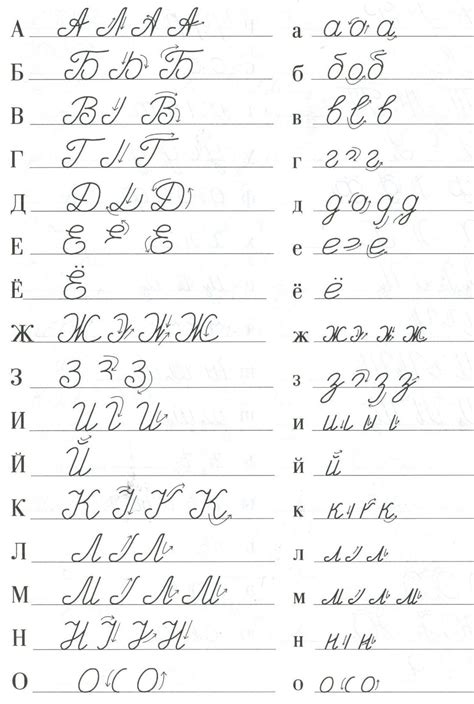 А А Л А А а а о а
Б Б Б Б б б о б
В В В в в в в
Г Г Г г г г
Д Д Д д д о д д
Е Е Е е е е
Ё Ё ё ё
Ж Ж Ж Ж ж ж ж ж
З З З з з з з
И И И и и и
Й Й й й
К К К к к к
Л Л Л л л л
М М Л М м м л м
Н Н Н н н н
О О С О о о с о